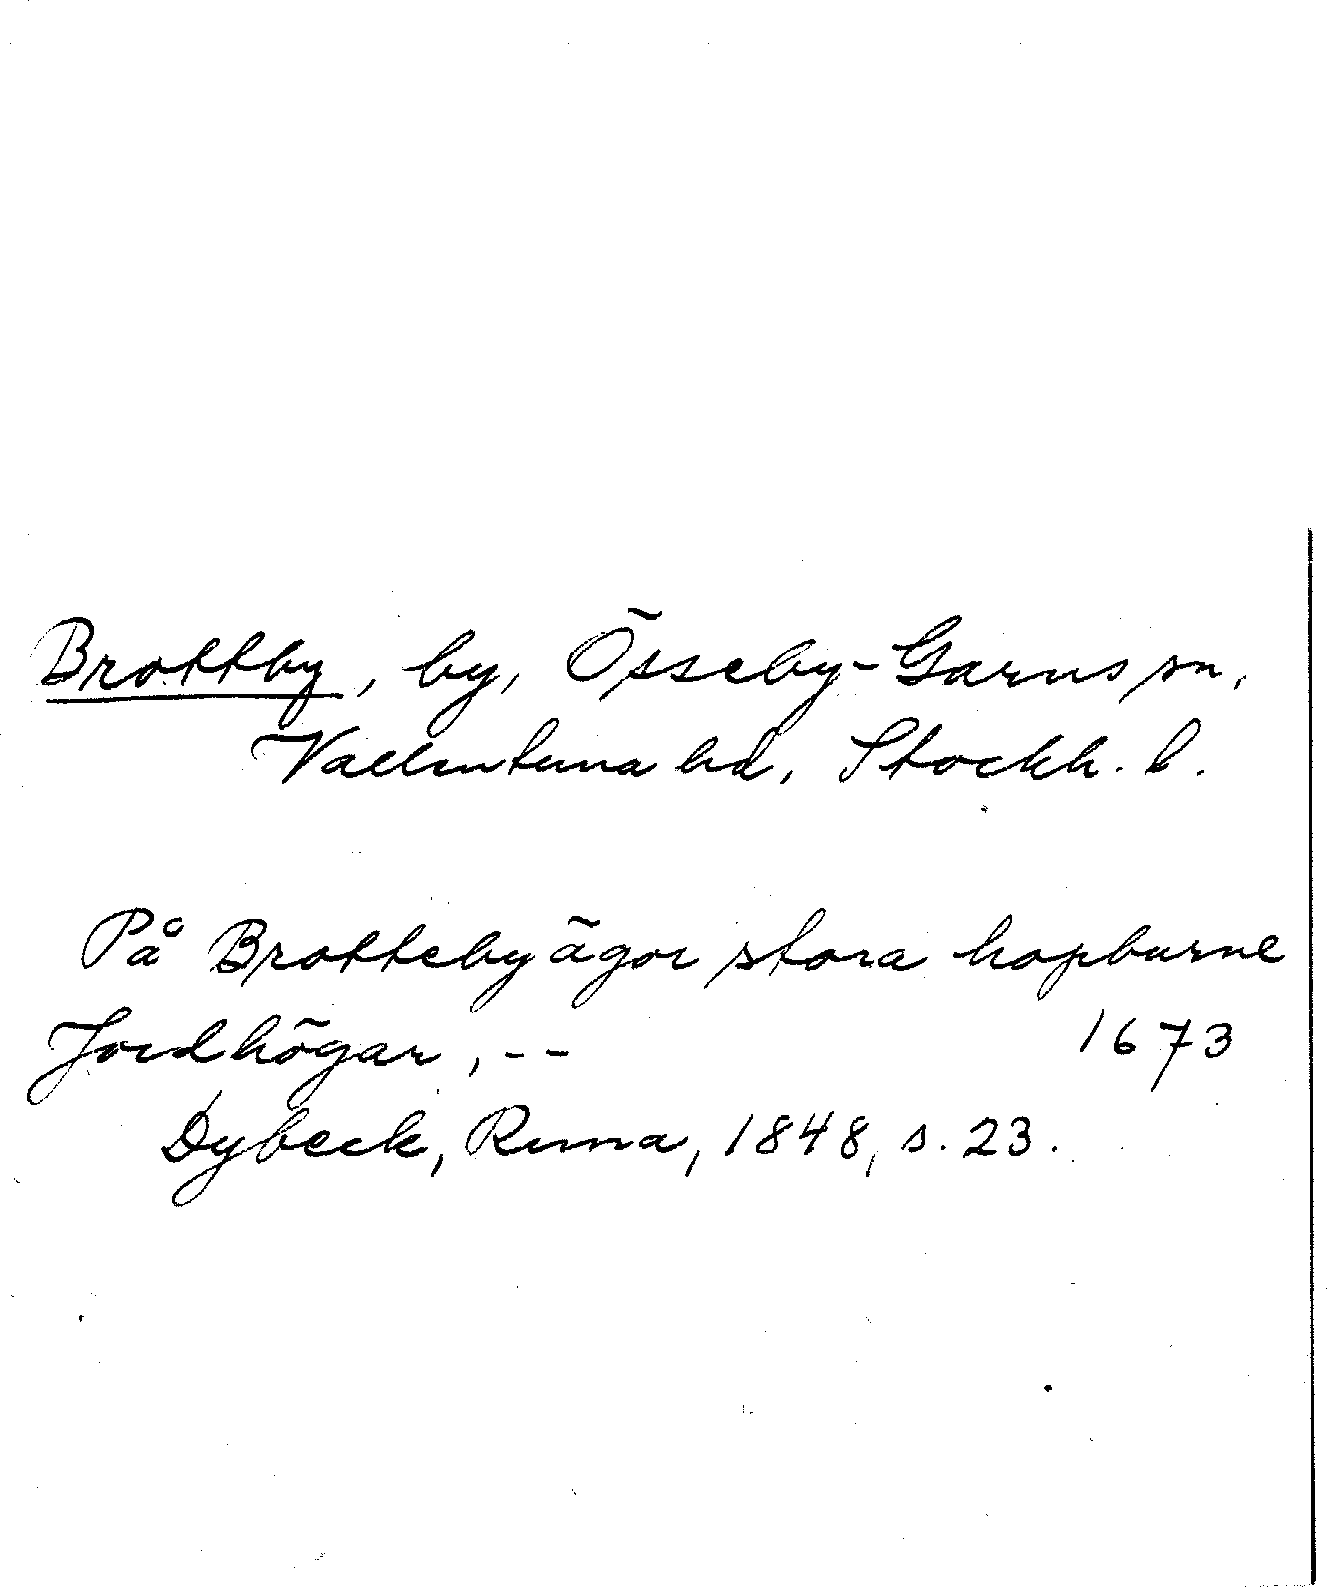 Brottby, by, Össeby-Garns sn,
Vallentuna hd, Stockh. l.
På Brotteby ägor stora hopburne
Jordhögar, -- 1673
Dybeck, Runa, 1848, s. 23.